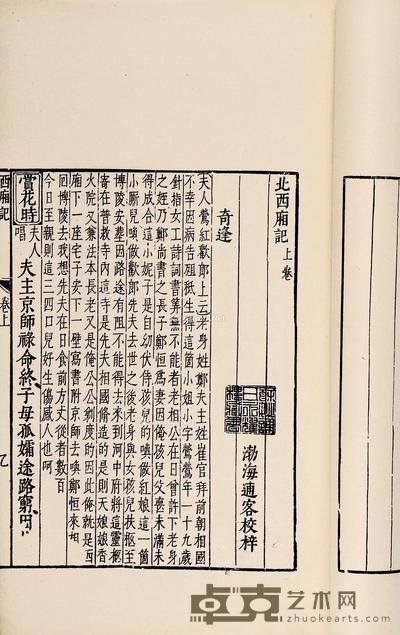 北西廂記 上卷
渤海逋客校梓
奇逢
夫人鶯紅歡郎上云老身姓鄭夫主姓崔官拜前朝相國
不幸因病告殂秖生得這箇小姐小字鶯鶯年一十九歲
針指女工詩詞書算無不能者老相公在日曾許下老身
之姪乃鄭尚書之長子鄭恒爲妻因俺孩兒父喪未滿未
得成合這小妮子是自幼伏侍孩兒的喚做紅娘這一箇
小厮兒喚做歡郎先夫去世之後老身與女孩兒扶柩至
博陵安塟因路途有阻不能得去來到河中府將這靈柩
寄在普救寺內這寺是先夫相國修造的是則天娘娘香
火院又兼法本長老又是俺公公剃度的因此俺就是西
廂下一座宅子安下一壁寫書附京師去喚鄭恒來相
囘博陵去我想先夫在日食前方丈從者數百
今日至親則這三四口兒好生傷感人也呵
賞花時 夫人唱 夫主京師祿命終子母孤孀途路窮因
西廂記 卷上 乙
卓克艺术网
zhuokearts.com